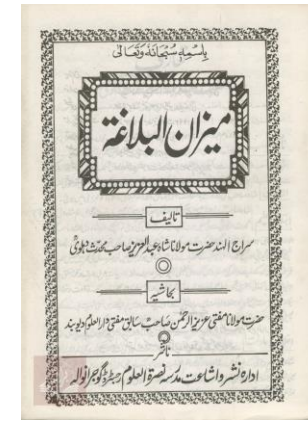 باسمہ سبحانہ وتعالیٰ
میزان البلاغۃ
تالیف
سراج الہند حضرت مولانا شاہ عبدالعزیز صاحب محدث دہلویؒ
بحاشیہ
حضرت مولانا مفتی عزیز الرحمٰن صاحبؒ سابق مفتی دارالعلوم دیوبند
ناشر
ادارہ نشر و اشاعت مدرسہ نصرۃ العلوم رجسٹرڈ گوجرانوالہ